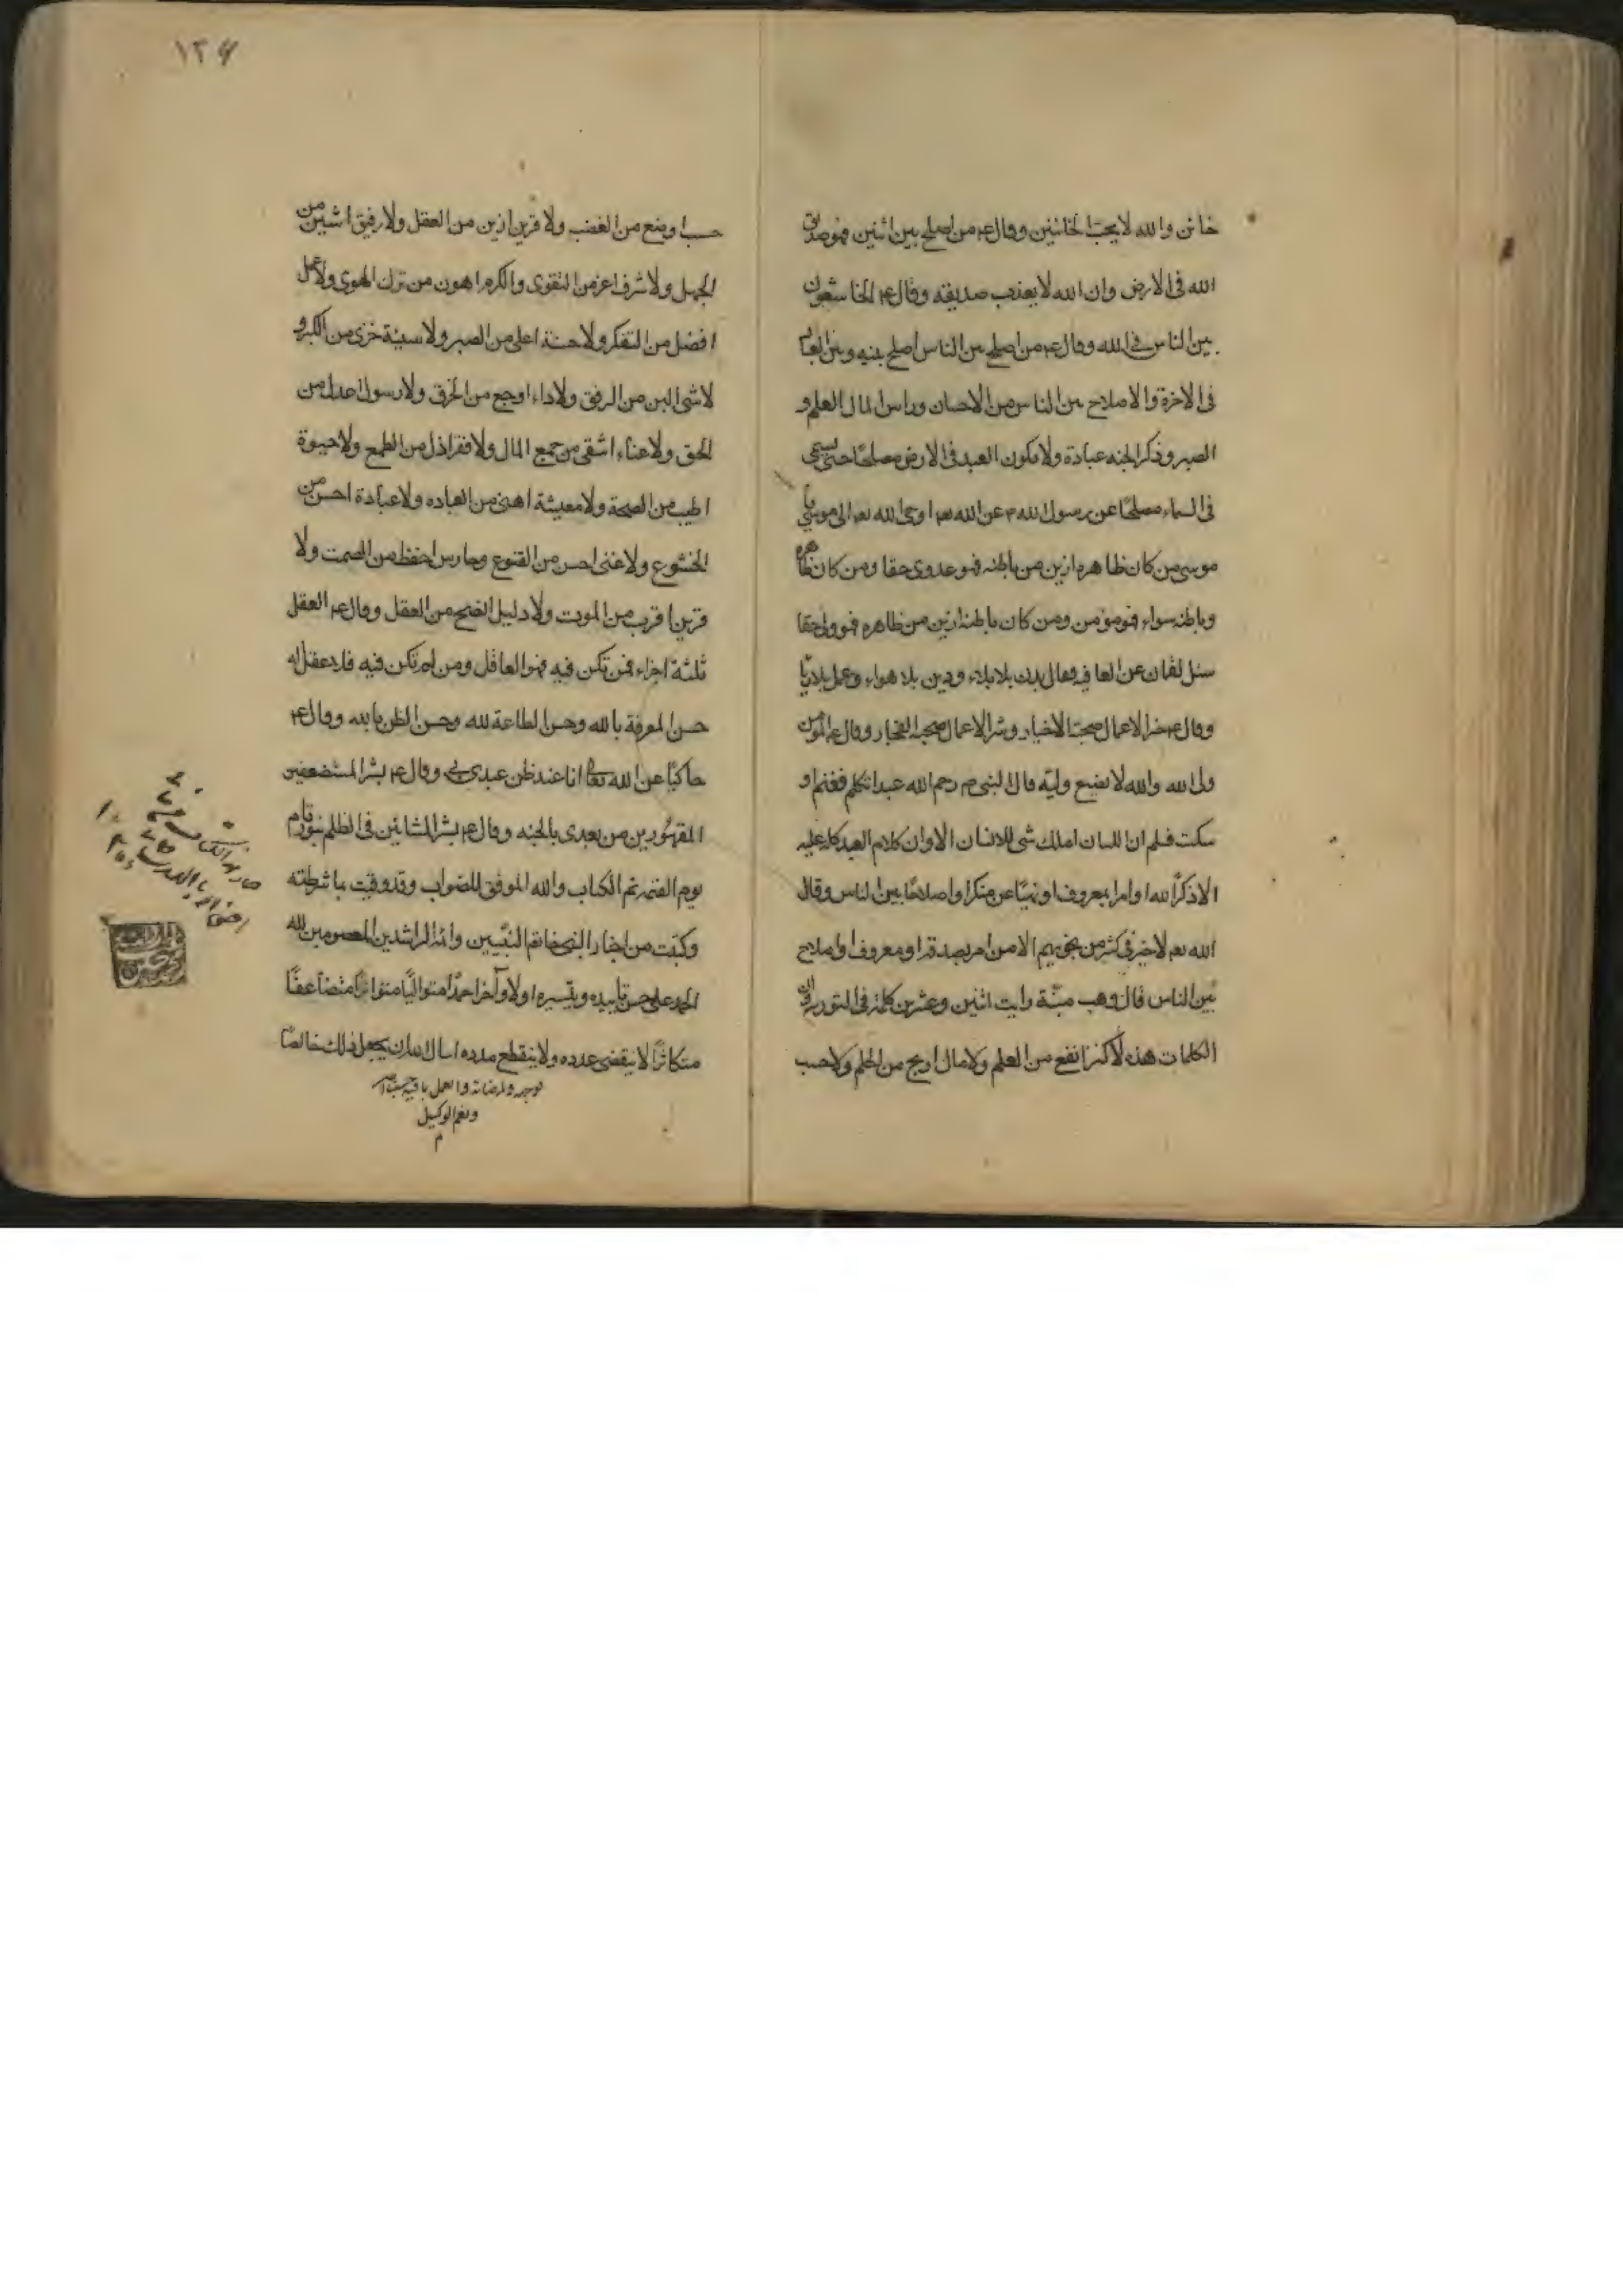 خائن والله لا يحبّ الخائنين وقال ع من اصلح بين اثنين فهو صديق
الله فى الارض وان الله لا يعذب صديقه وقال ع الخاشعون
بين الناس فى الله وقال ع من اصلح بين الناس اصلح بينه وبين العباد
فى الاخرة والاصلاح بين الناس من الاحسان وراس المال العلم و
الصبر وذكر الجنه عبادة ولا يكون العبد فى الارض مصلحًا حتى يسمى
فى السماء مصلحًا عن رسول الله ص عن الله تع اوحى الله تع الى موسى يا
موسى من كان ظاهره ازين من باطنه فهو عدوى حقا ومن كان ظاهره
وباطنه سواء فهو مؤمن ومن كان باطنه ازين من ظاهره فهو ولى حقا
سئل لقمان عن العافية فقال بدن بلا بلاء ودين بلا هواء وعمل بلا ريا
وقال ع خير الاعمال صحبة الاخيار وشر الاعمال صحبة الفجار وقال ع المؤمن
ولى الله والله لا يضيع وليّه قال النبى ص رحم الله عبدا تكلم فغنم او
سكت فسلم ان اللسان املك شى للانسان الا وان كلام العبد كله عليه
الا ذكرًا لله او امرا بمعروف او نهيًا عن منكر او اصلاحًا بين الناس وقال
الله تع لا خير فى كثير من نجويهم الا من امر بصدقة او معروف او اصلاح
بين الناس قال وهب منبّة رايت اثنين وعشرين كلمة فى التورية
الكلمات هذه لا كنز انفع من العلم ولا مال اربح من الحلم ولا حسب
حسبا اوضع من الغضب ولا قرين ازين من العقل ولا رفيق اشين من
الجهل ولا شرف اعز من التقوى والكرم اهون من ترك الهوى ولا عمل
افضل من التفكر ولا حسنة اعلى من الصبر ولا سيئة اخزى من الكبر و
لا شى الين من الرفق ولا داء اوجع من الخرق ولا رسول اعدل من
الحق ولا عناء اشقى من جمع المال ولا فقر اذل من الطمع ولا حيوة
اطيب من الصحة ولا معيشة اهنى من العباده ولا عبادة احسن من
الخشوع ولا غنى احسن من القنوع وحارس احفظ من الصمت ولا
قرين اقرب من الموت ولا دليل انصح من العقل وقال ع العقل
ثلثة اجزاء فمن تكن فيه فهو العاقل ومن لم تكن فيه فلا عقل له
حسن المعرفة بالله وحسن الطاعة لله وحسن الظن بالله وقال ع
حاكيًا عن الله تعا انا عند ظن عبدى بى وقال ع بشر المستضعفين
المقهورين من بعدى بالجنه وقال ع بشر المشائين فى الظلم بنور تام
يوم القيمه تم الكتاب والله الموفق للصواب وقد وفيت ما شرطته
وكتبت من اخبار النبى خاتم النبيين وائمة الراشدين المعصومين لله
الحمد على حسن تاييده وتيسيره اولا وآخرا حمدًا متواليًا متواترًا متضاعفًا
متكاثرًا لا ينقضى عدده ولا ينقطع مدده اسال الله ان يجعل ذلك خالصًا
لوجهه ومرضاته
ونعم الوكيل
م
١٢٤